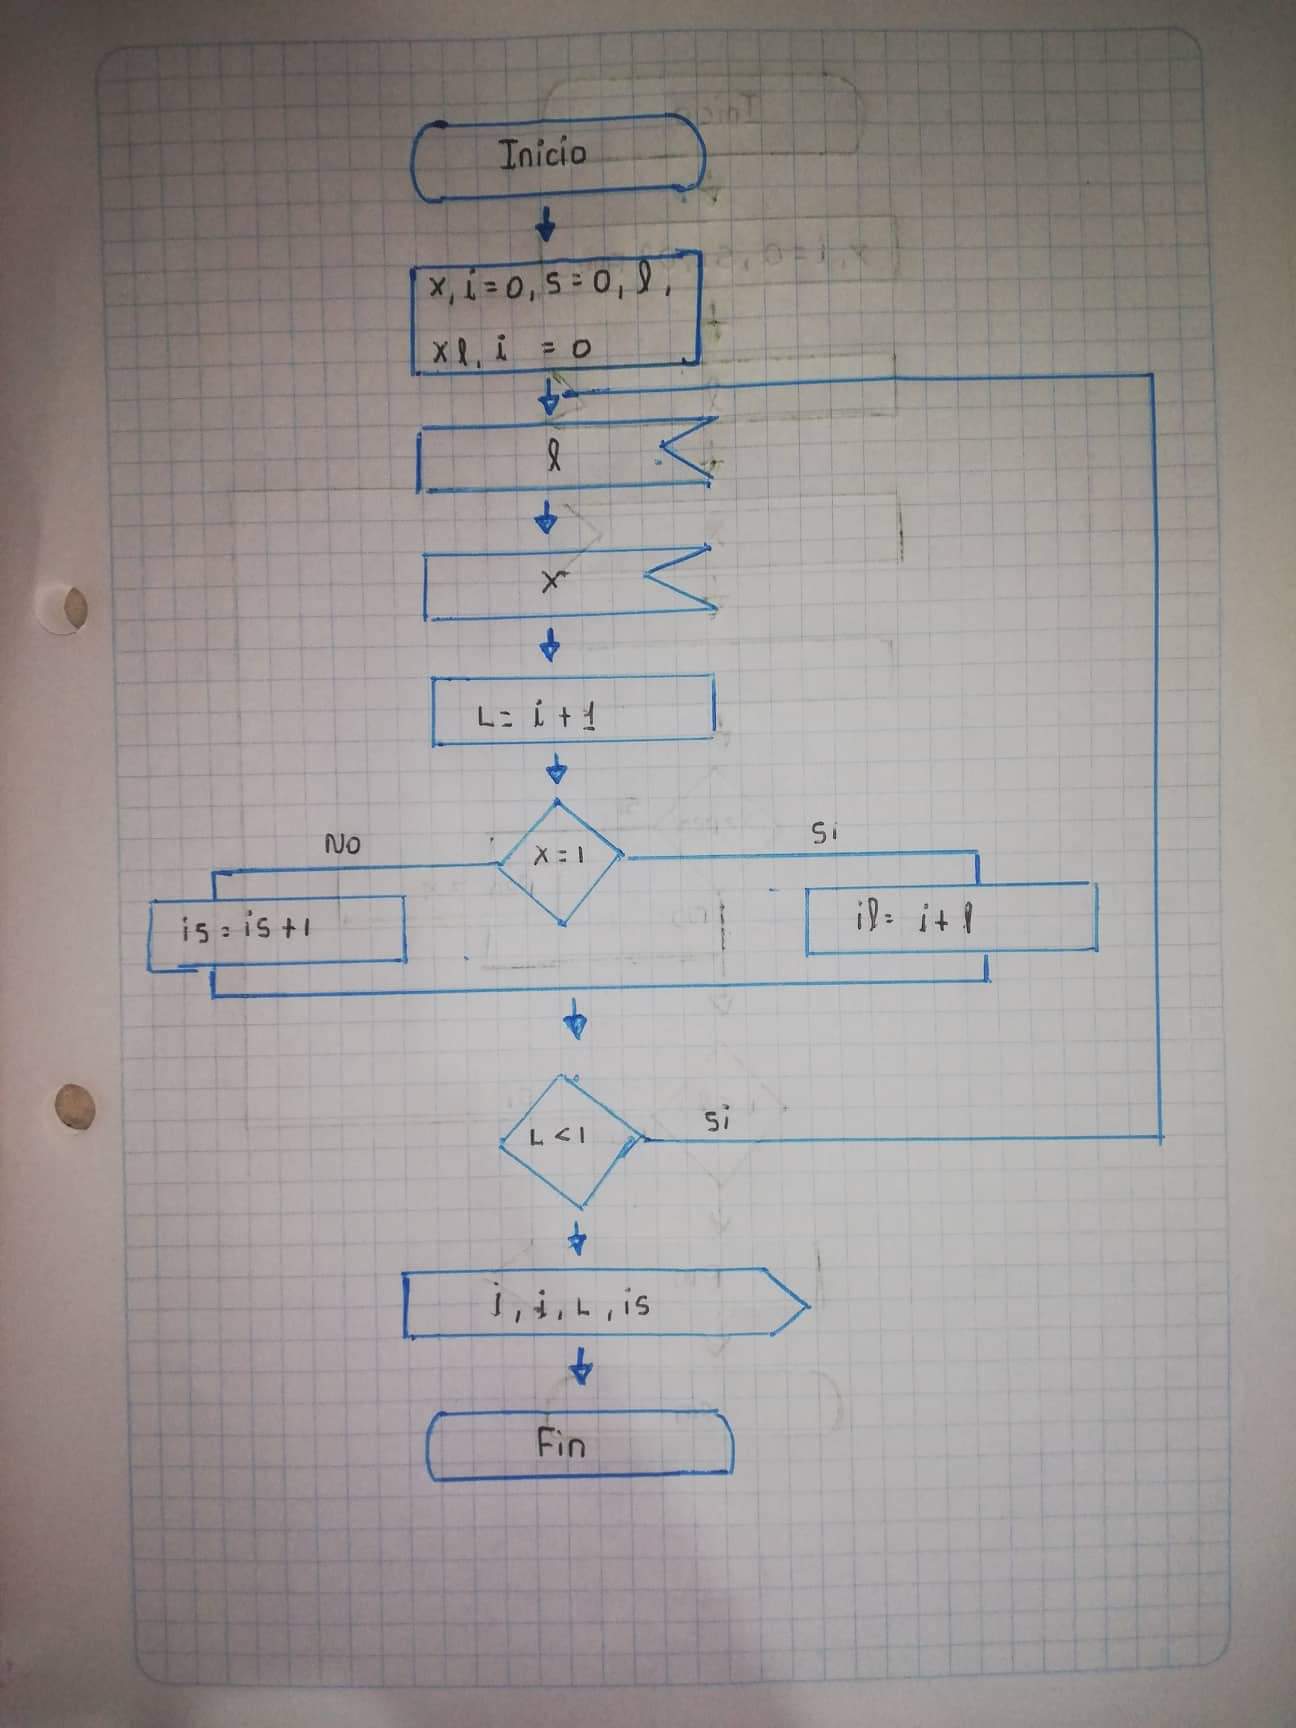 Inicio
x, i=0, s=0, l,
xl, i = 0
l
x
L= i + 1
x=1
No
Si
is = is + 1
il= i + l
L < 1
Si
i, i, L, is
Fin